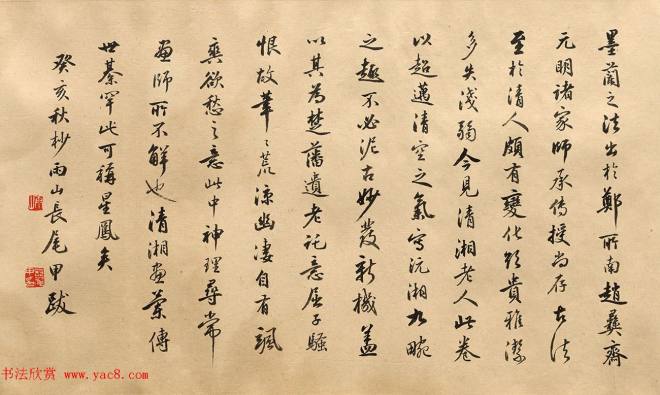 墨蘭之法出於鄭所南趙彝齋
元明諸家師承傳授尚存古法
至於清人頗有變化雖貴雅潔
多失淺弱今見清湘老人此卷
以超邁清空之氣寫沅湘九畹
之趣不必泥古妙發新機蓋
以其為楚藩遺老託意屈子騷
恨故筆々荒涼幽淒自有颯
爽欲愁之意此中神理尋常
畫師所不解也清湘畫蘭傳
世綦罕此可稱星鳳矣
癸亥秋杪雨山長尾甲跋
书法欣赏 www.yac8.com